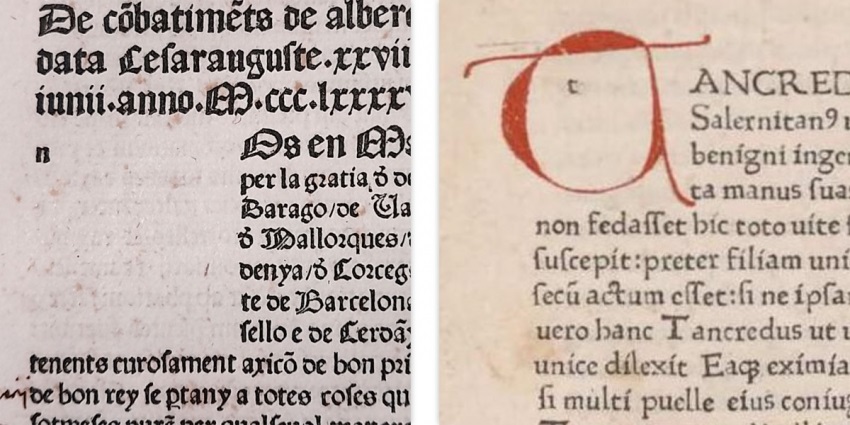 De cõbatimẽts de alber
data Cesarauguste.xxvii
iunii.anno.M.ccc.lxxxx
n
Os en M
per la gratia đ d
Darago/de Ua
đ Mallorques/
denya/đ Corceg
te de Barcelon
sello e de Cerdã
tenents curosament axicõ de bon pri
de bon rey se ꝑtany a totes coses qu
t
ANCRED
Salernitanꝰ
benigni inge
ta manus sua
non fedasset hic toto uite
suscepit:preter filiam uni
secũ actum esset:si ne ipsa
uero hanc Tancredus ut u
unice dilexit Eaqꝫ eximia
si multi puelle eius coniug